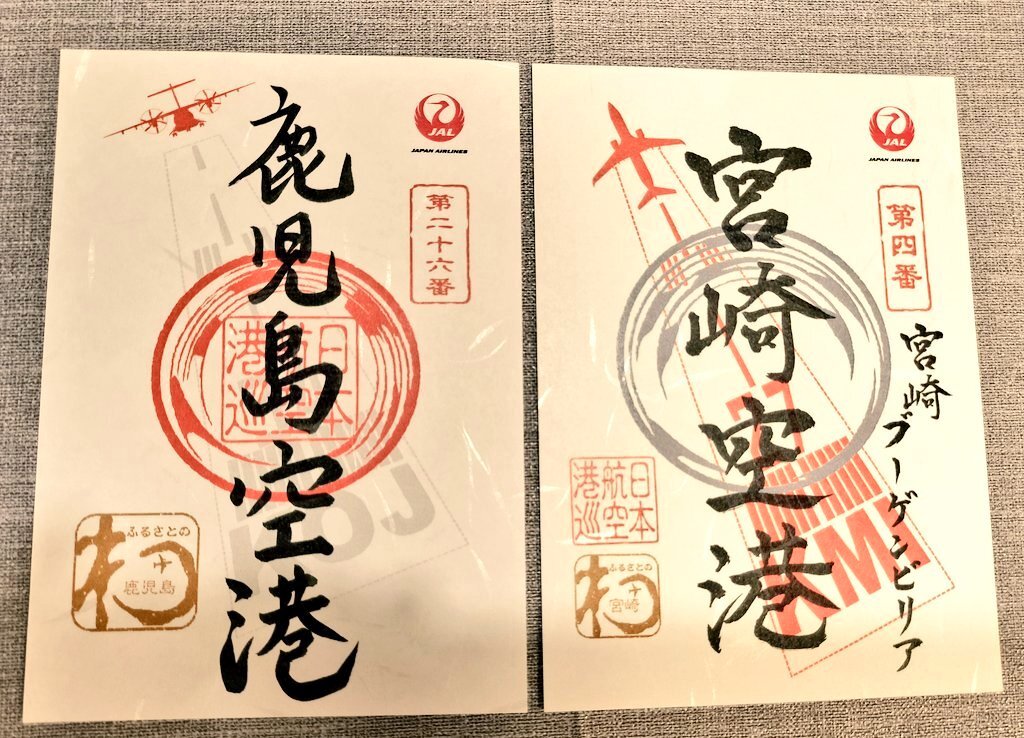 JAL
JAPAN AIRLINES
第二十六番
鹿児島空港
日本
航空
港巡
JOJ
ふるさとの
鹿児島
JAL
JAPAN AIRLINES
第四番
宮崎空港
宮崎ブーゲンビリア
日本
航空
港巡
KMI
ふるさとの
宮崎